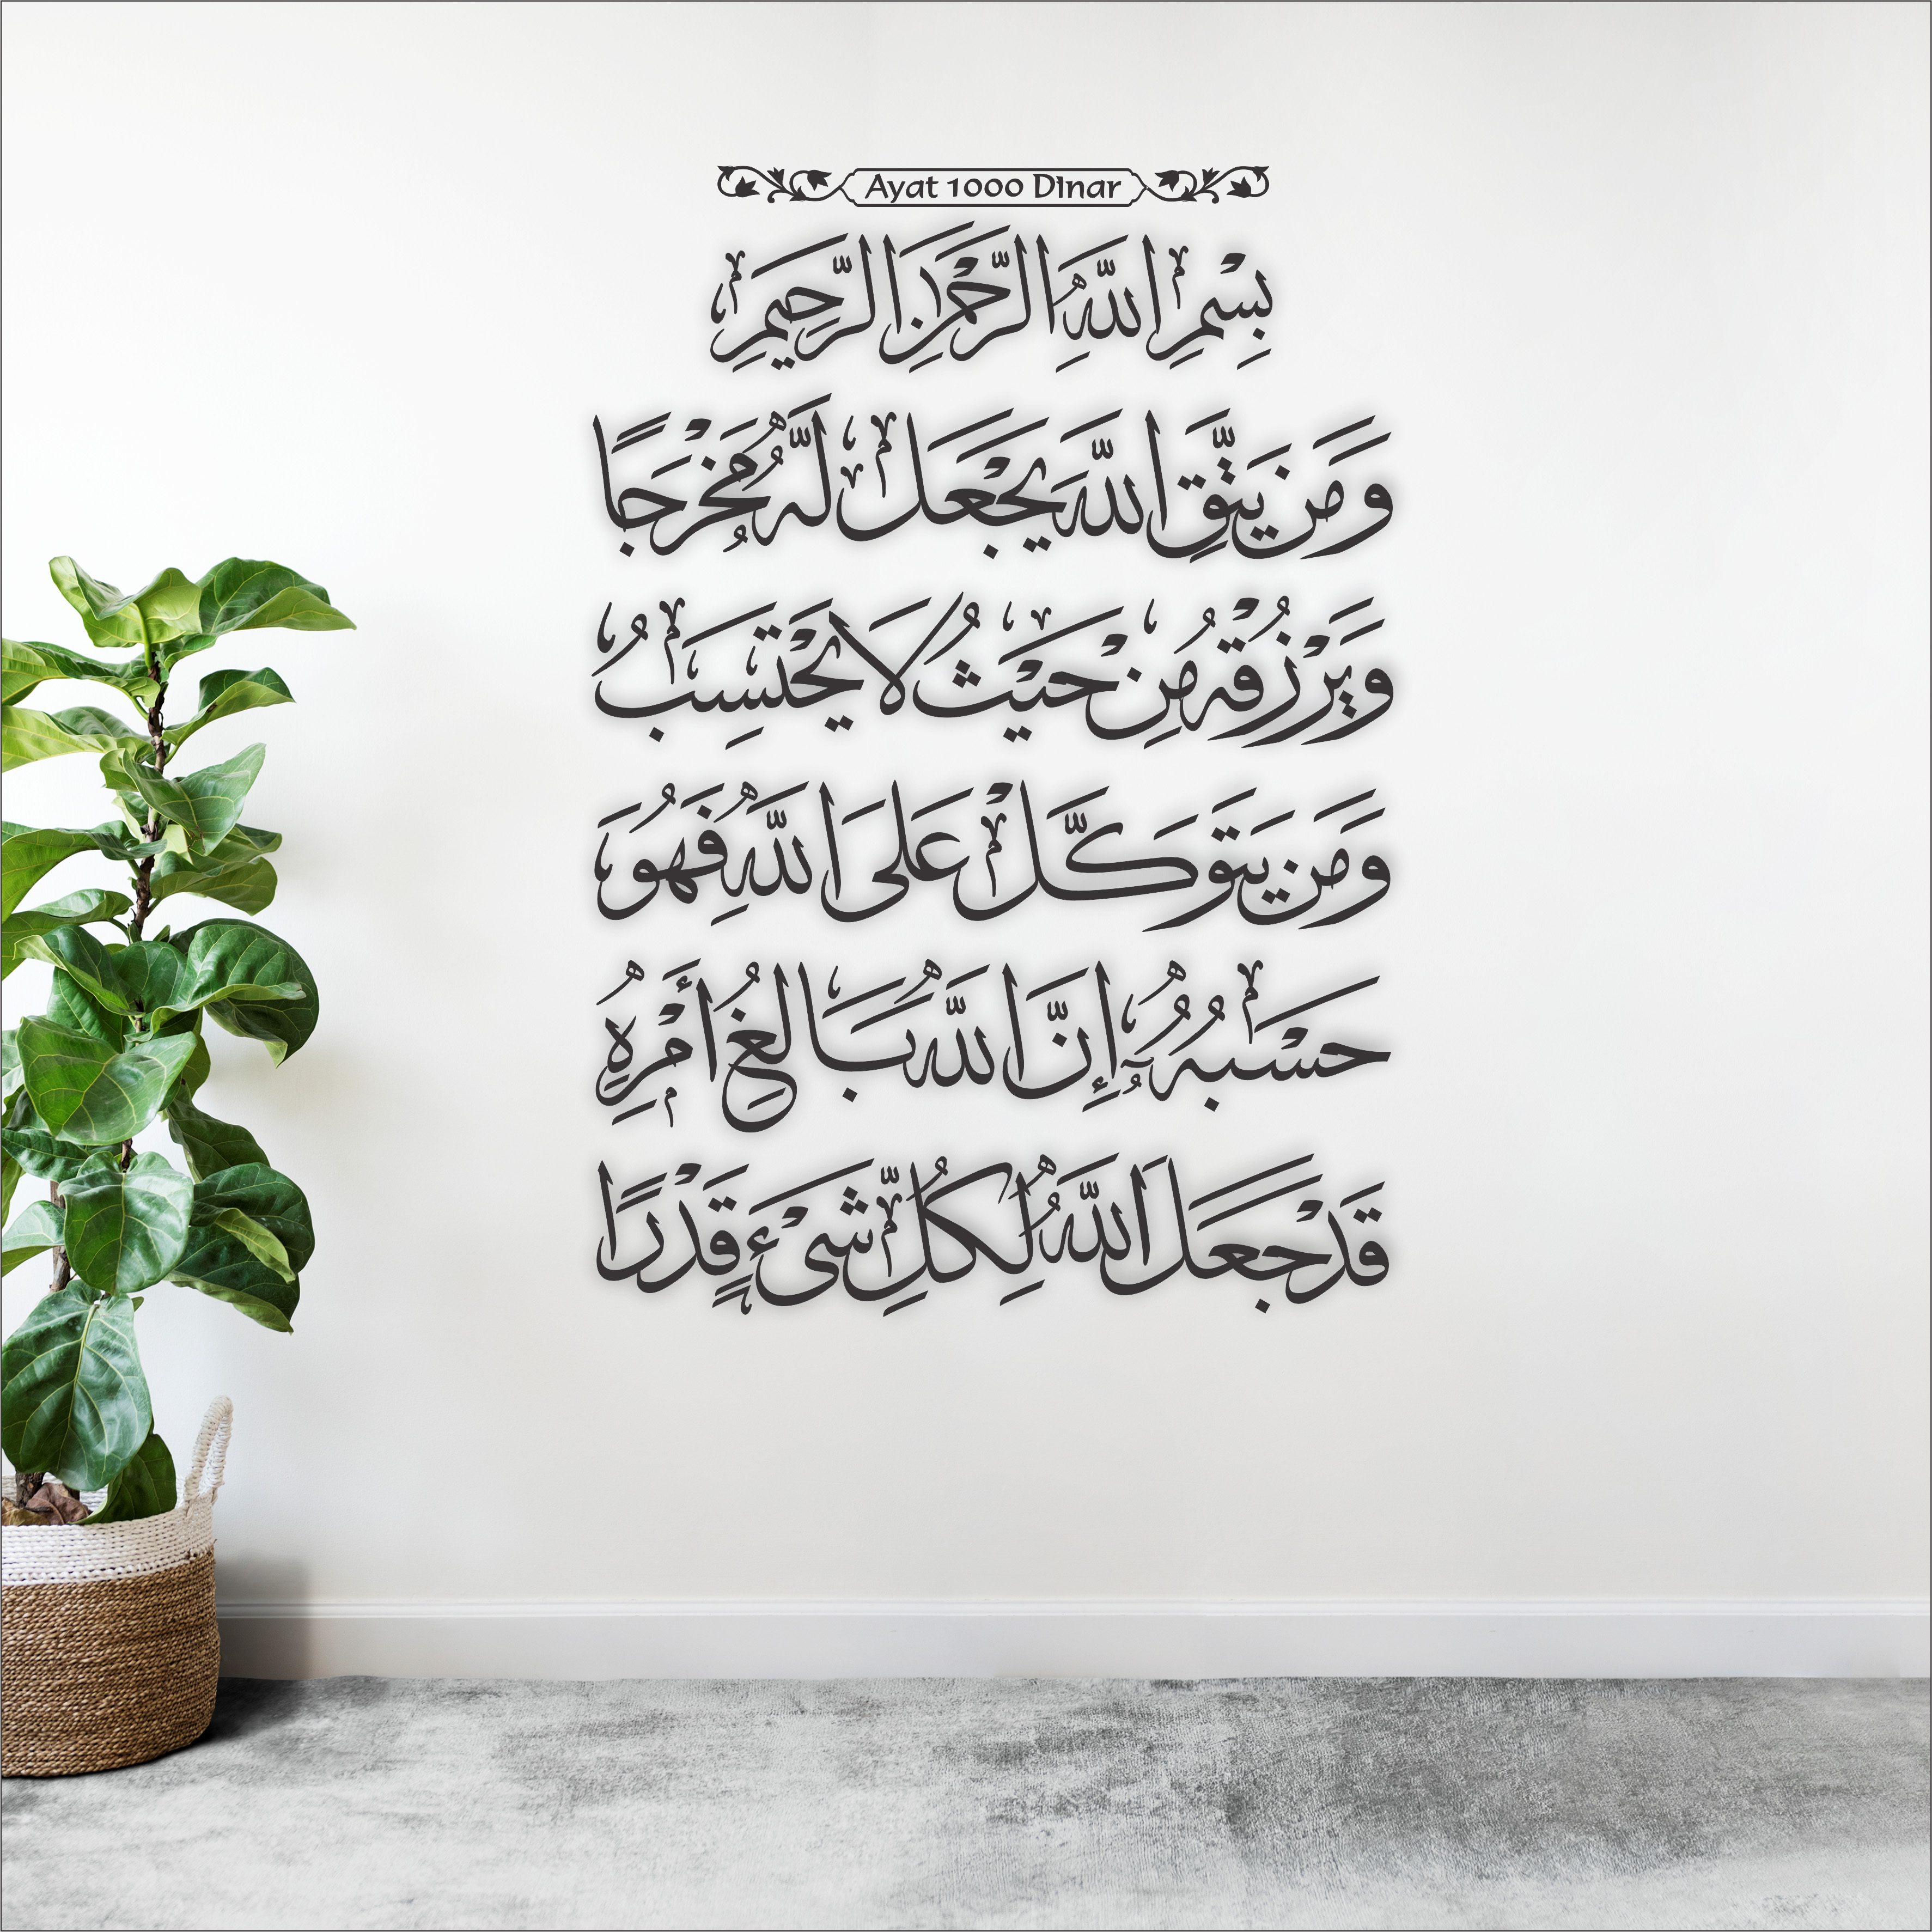 Ayat 1000 DInar
بِسْمِ اللَّهِ الرَّحْمٰنِ الرَّحِيمِ
وَمَن يَتَّقِ اللَّهَ يَجْعَل لَّهُ مَخْرَجًا
وَيَرْزُقْهُ مِنْ حَيْثُ لَا يَحْتَسِبُ
وَمَن يَتَوَكَّلْ عَلَى اللَّهِ فَهُوَ
حَسْبُهُ إِنَّ اللَّهَ بَالِغُ أَمْرِهِ
قَدْ جَعَلَ اللَّهُ لِكُلِّ شَيْءٍ قَدْرًا